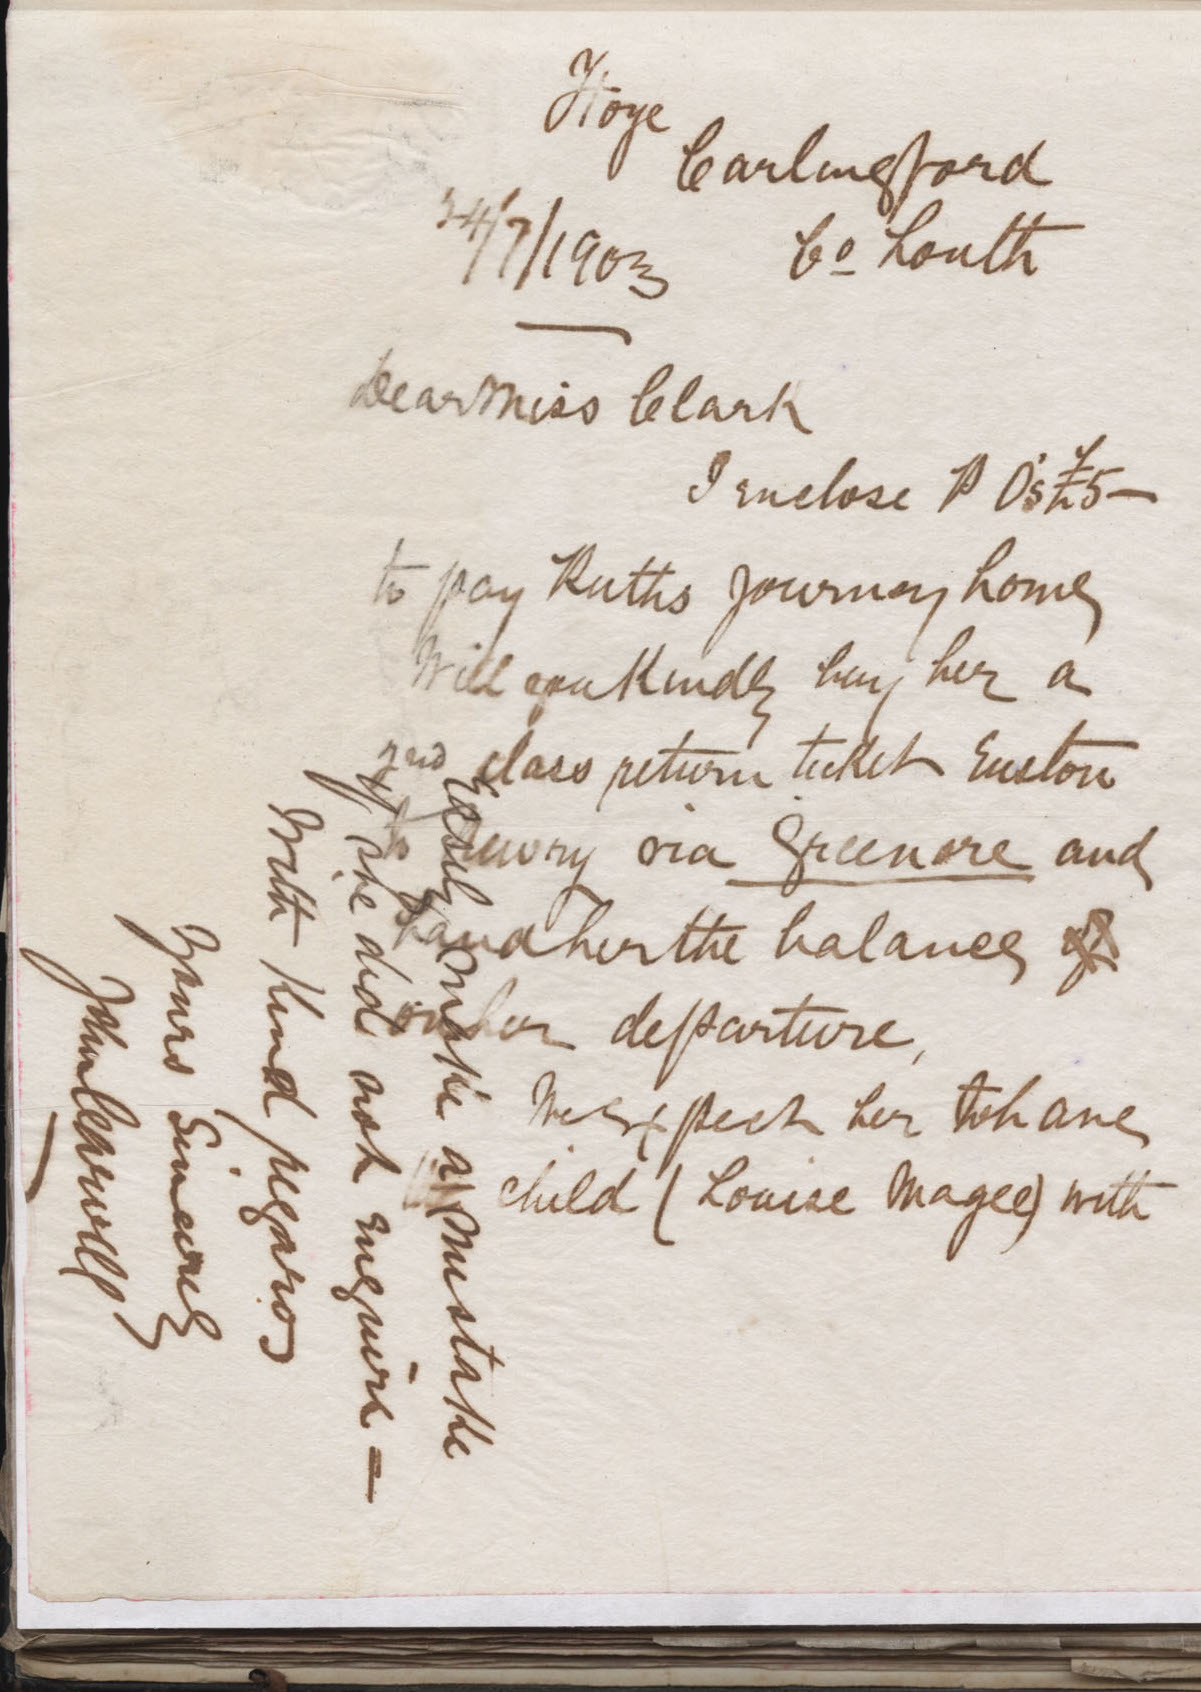 Carlingford
24/7/1903 Co Louth
Dear Miss Clark
I enclose P O's £5 —
to pay Ruths journey home,
Will you kindly buy her a
2nd class return ticket Euston
to Newry via Greenore and
hand her the balance,
on her departure,
We expect her to have
child (Louise Magee) with
easily make a mistake
if she did not enquire —
With kind regards
Yours Sincerely